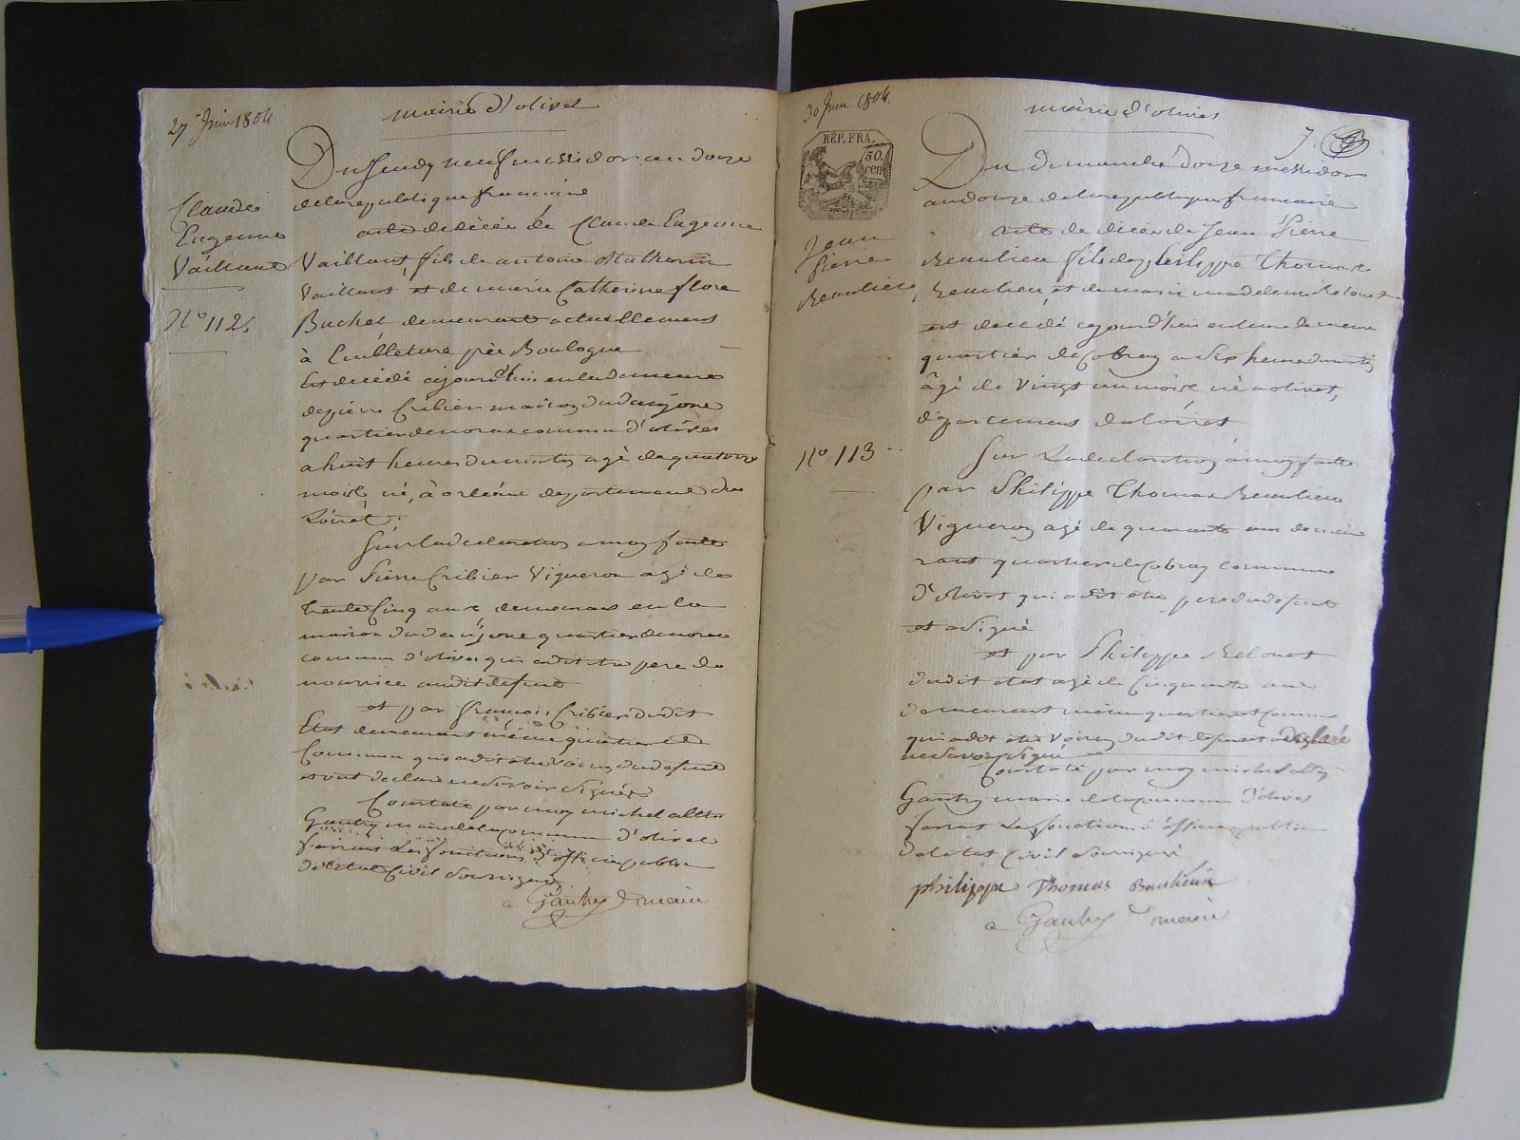 27 Juin 1804
mairie d'olivet
Du Jeudy neuf messidor an douze
de la republique francaise
Claude
Eugenne
Vaillant
acte de décée de Claude Eugenne
Vaillant fils de antoine Mathurin
Vaillant et de marie Catherine flore
N° 112
Buchet demeurante actuellement
à près Boulogne
Est décédé cejourd'hui en la demeure
de pierre Cribier maison du donjone
quartier de commune d'olivet
a huit heures du matin agé de quatorze
mois né, à orléans departement du
Loiret.
Sur la declaration a moy faite
par Pierre Cribier Vigneron agé de
trente Cinq ans demeurant en la
maison du donjone quartier de
commune d'olivet qui a dit etre pere de
nourrice audit defunt
et par francois Cribier dudit
Etat demeurant même quartier et
Commune qui a dit etre voisin du defunt
et ont declaré ne savoir signer
Constaté par moy michel
Gautry maire de la commune d'olivet
faisant les fonctions d'officier public
de l'etat Civil soussigné
Gautry maire
30 Juin 1804
mairie d'olivet
7
RÉP. FRA.
50.
cen.
Du dimanche douze messidor
an douze de la republique francaise
Jean
Pierre
Beaulieu
acte de décée de Jean Pierre
Beaulieu fils de philippe Thomas
Beaulieu et de marie madeleine
est decedé cejourd'hui en leur demeure
quartier de Cobray a six heures du matin
âgé de vingt un mois né a olivet,
departement du loiret
N° 113
Sur la declaration à moy faite
par Philippe Thomas Beaulieu
Vigneron agé de quarante ans demeu
rant quartier de Cobray commune
d'olivet qui a dit etre pere du defunt
et a signé
et par Philippe
dudit etat agé de Cinquante ans
demeurant même quartier et commune
qui a dit etre voisin dudit defunt a declaré
ne savoir signer
Constaté par moy michel
Gautry maire de la commune d'olivet
faisant les fonctions d'officier public
de l'etat Civil soussigné
philippe thomas Beaulieu
Gautry maire